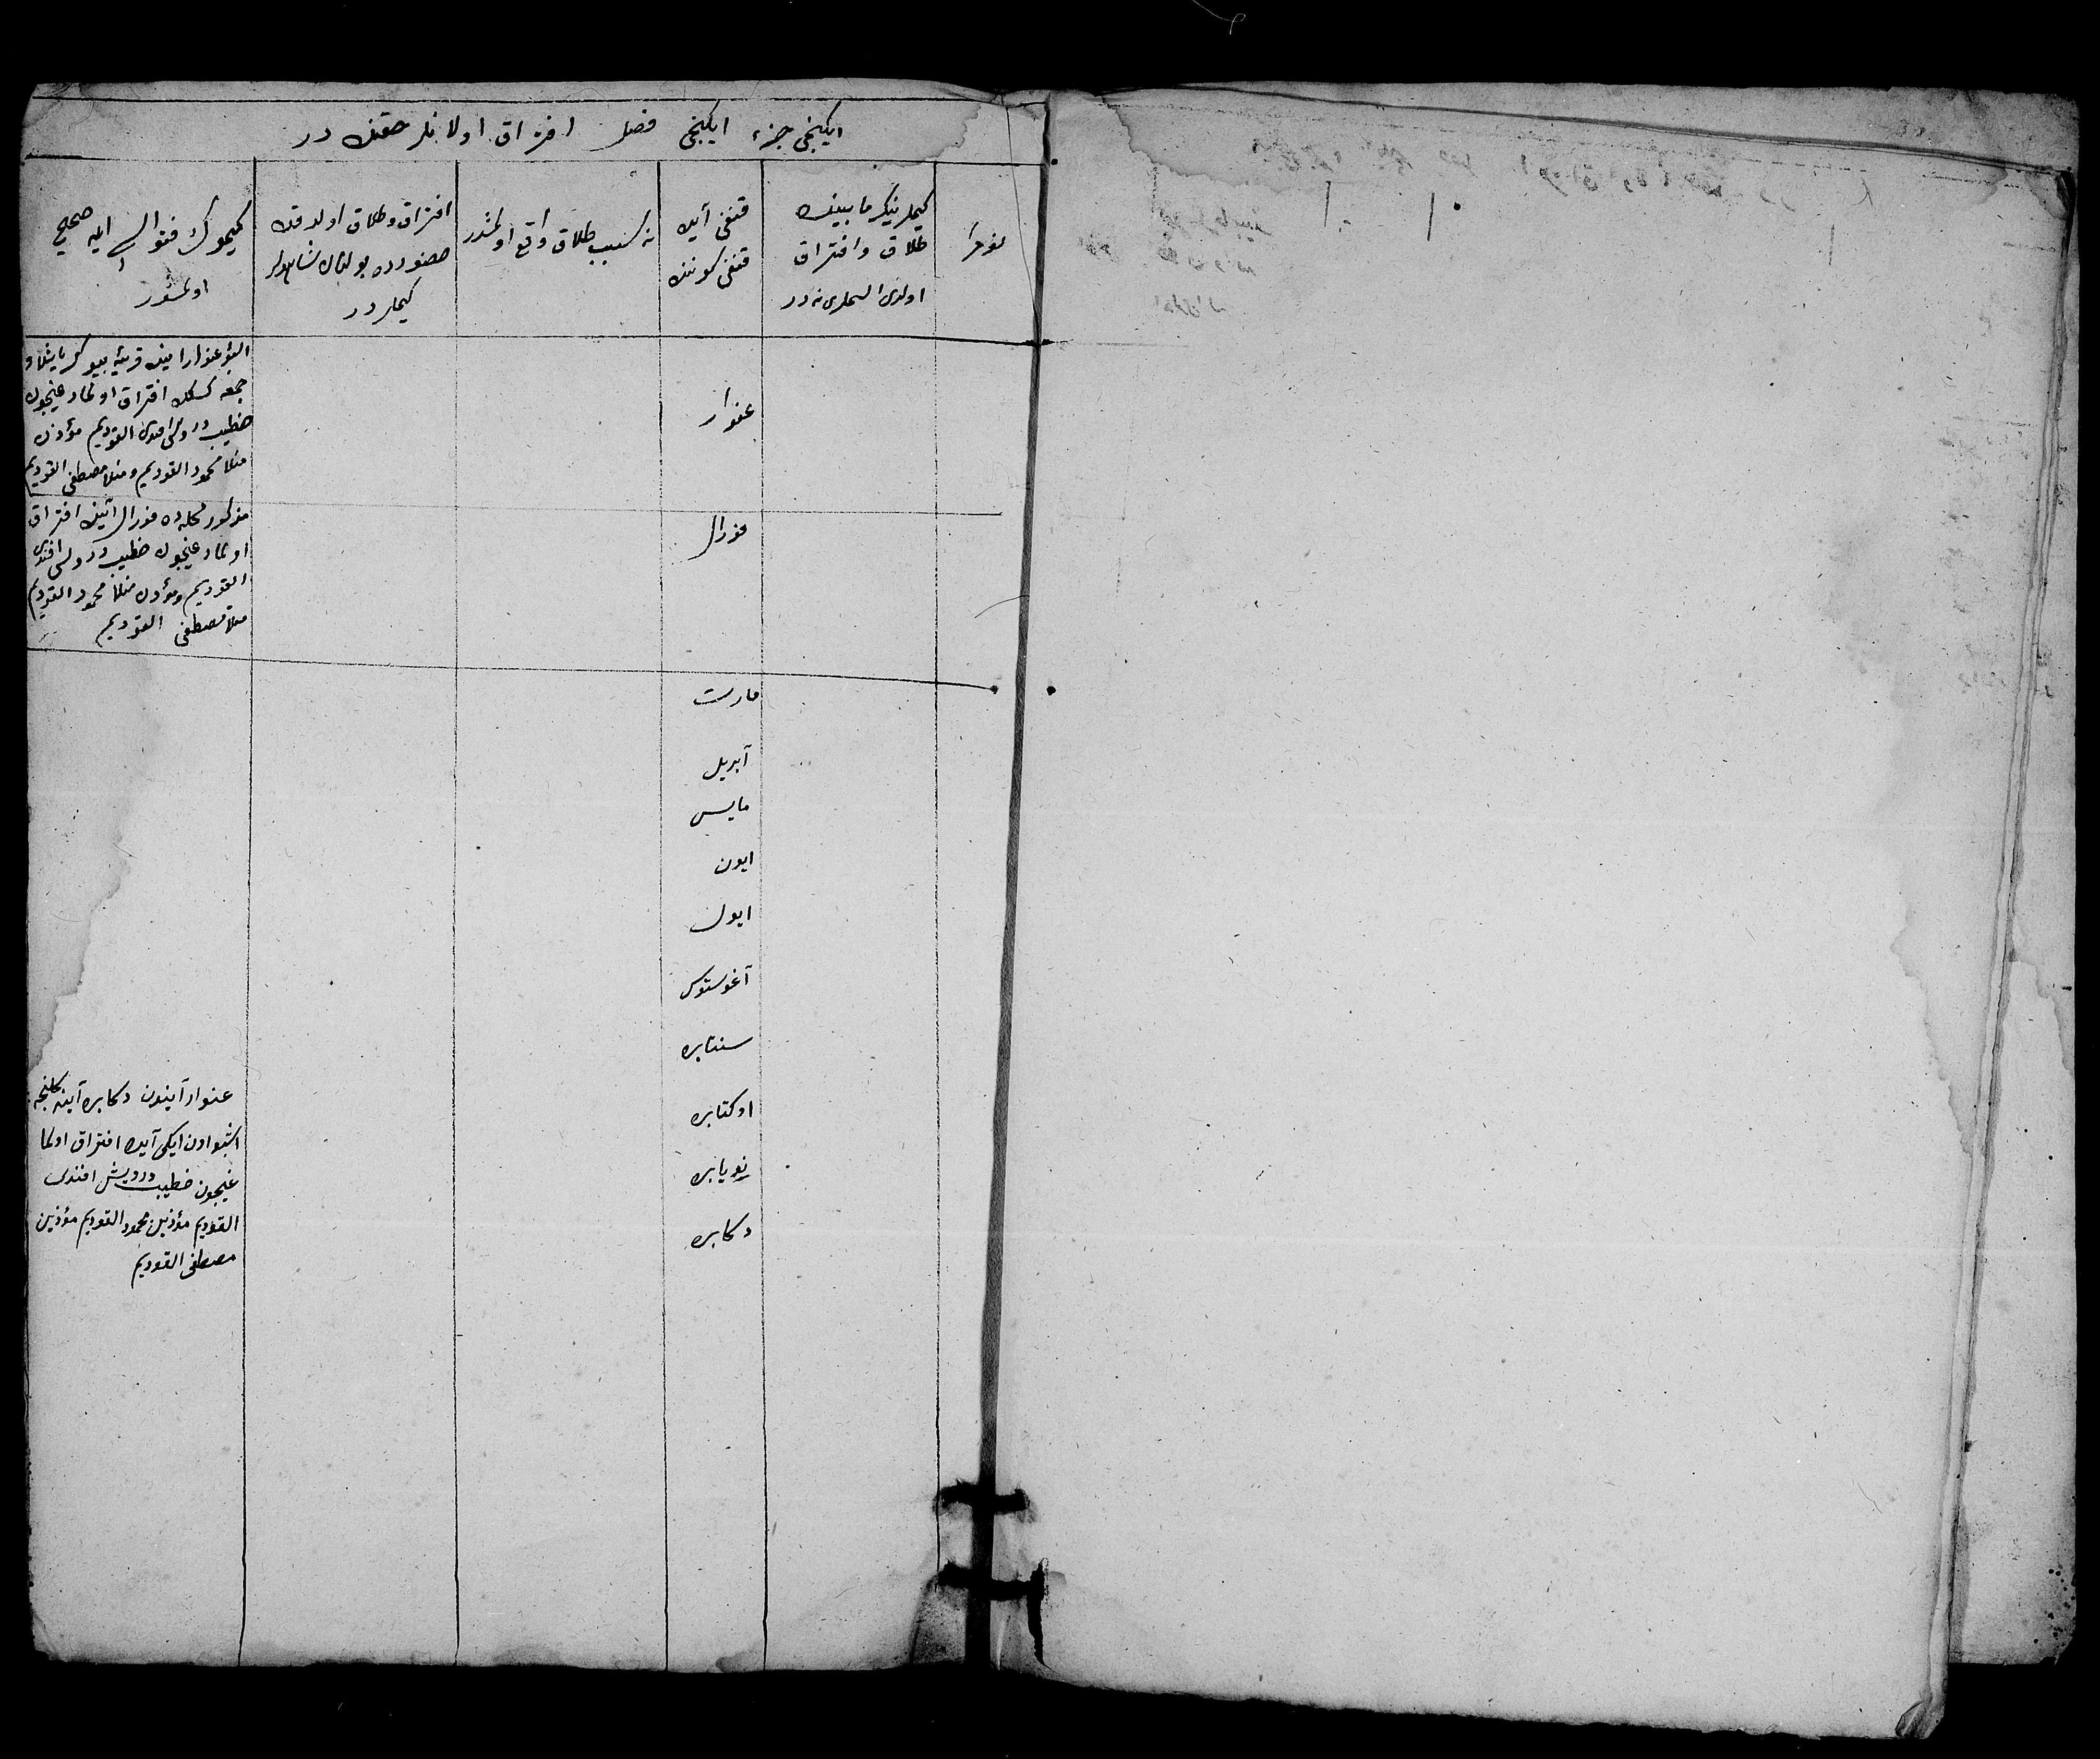 ایکنجی جزء ایکنجی فصل افتراق اولانلر حقنده در
نومر
کیملرنیکر مابینده
طلاق وافتراق
اولدی اسملری نه در
قنغی آیده
قنغی کوننده
نه سبب طلاق واقع اولمشدر
افتراق وطلاق اولدقده
حضورده بولنان شاهدلر
کیملر در
کیموک فتواسی ایله صحیح
اولمشدر
غنوار
اشبو غنوار اینده قریۀ بیوک
جمعه افتراق اولمادغیچون
خطیب درویش افندی القودیم مؤذن
منلا محمود القودیم ومنلا مصطفی القودیم
فورال
مذکور محلهده فورال آینده افتراق
اولمادغیچون خطیب درویش افندی
القودیم ومؤذن منلا محمود القودیم
منلا مصطفی القودیم
مارت
آبریل
مایس
ایون
ایول
آغوستوس
سنتابره
اوکتابره
نویابره
دکابره
غنوار آیندن دکابره آینه کلنجه
اشبو اون ایکی آیده افتراق اولما
غیچون خطیب درویش افندی
القودیم مؤذین محمود القودیم مؤذین
مصطفی القودیم